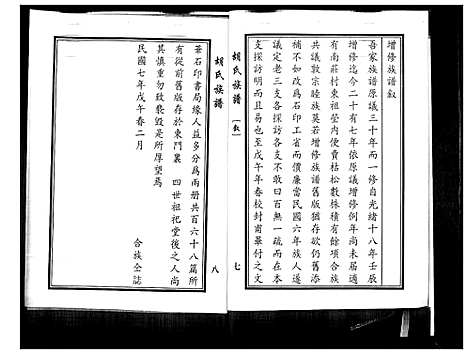 增修族譜叙
吾家族譜原議三十年而一修自光緒十八年壬辰
增修迄今二十有七年依原議增修例年尚未屆適
有南莊村東祖塋内便賣枯松數株積有餘項合族
共議敦宗睦族莫若增修族譜舊版猶存欲仍舊添
補不如改爲石印工省而價廉當民國六年族人遂
議定老三支各探訪各支不敢曰百無一疏而在本
支探訪明而且易也至戊午年春校對甫畢付之文
胡氏族譜
叙
七
華石印書局緣人益多分爲兩册共百六十八篇所
有從前舊版存於東門裏 四世祖祀堂後之人尚
其慎重勿致褻毁是所厚望焉
民國七年戊午春二月
合族公誌
胡氏族譜
八